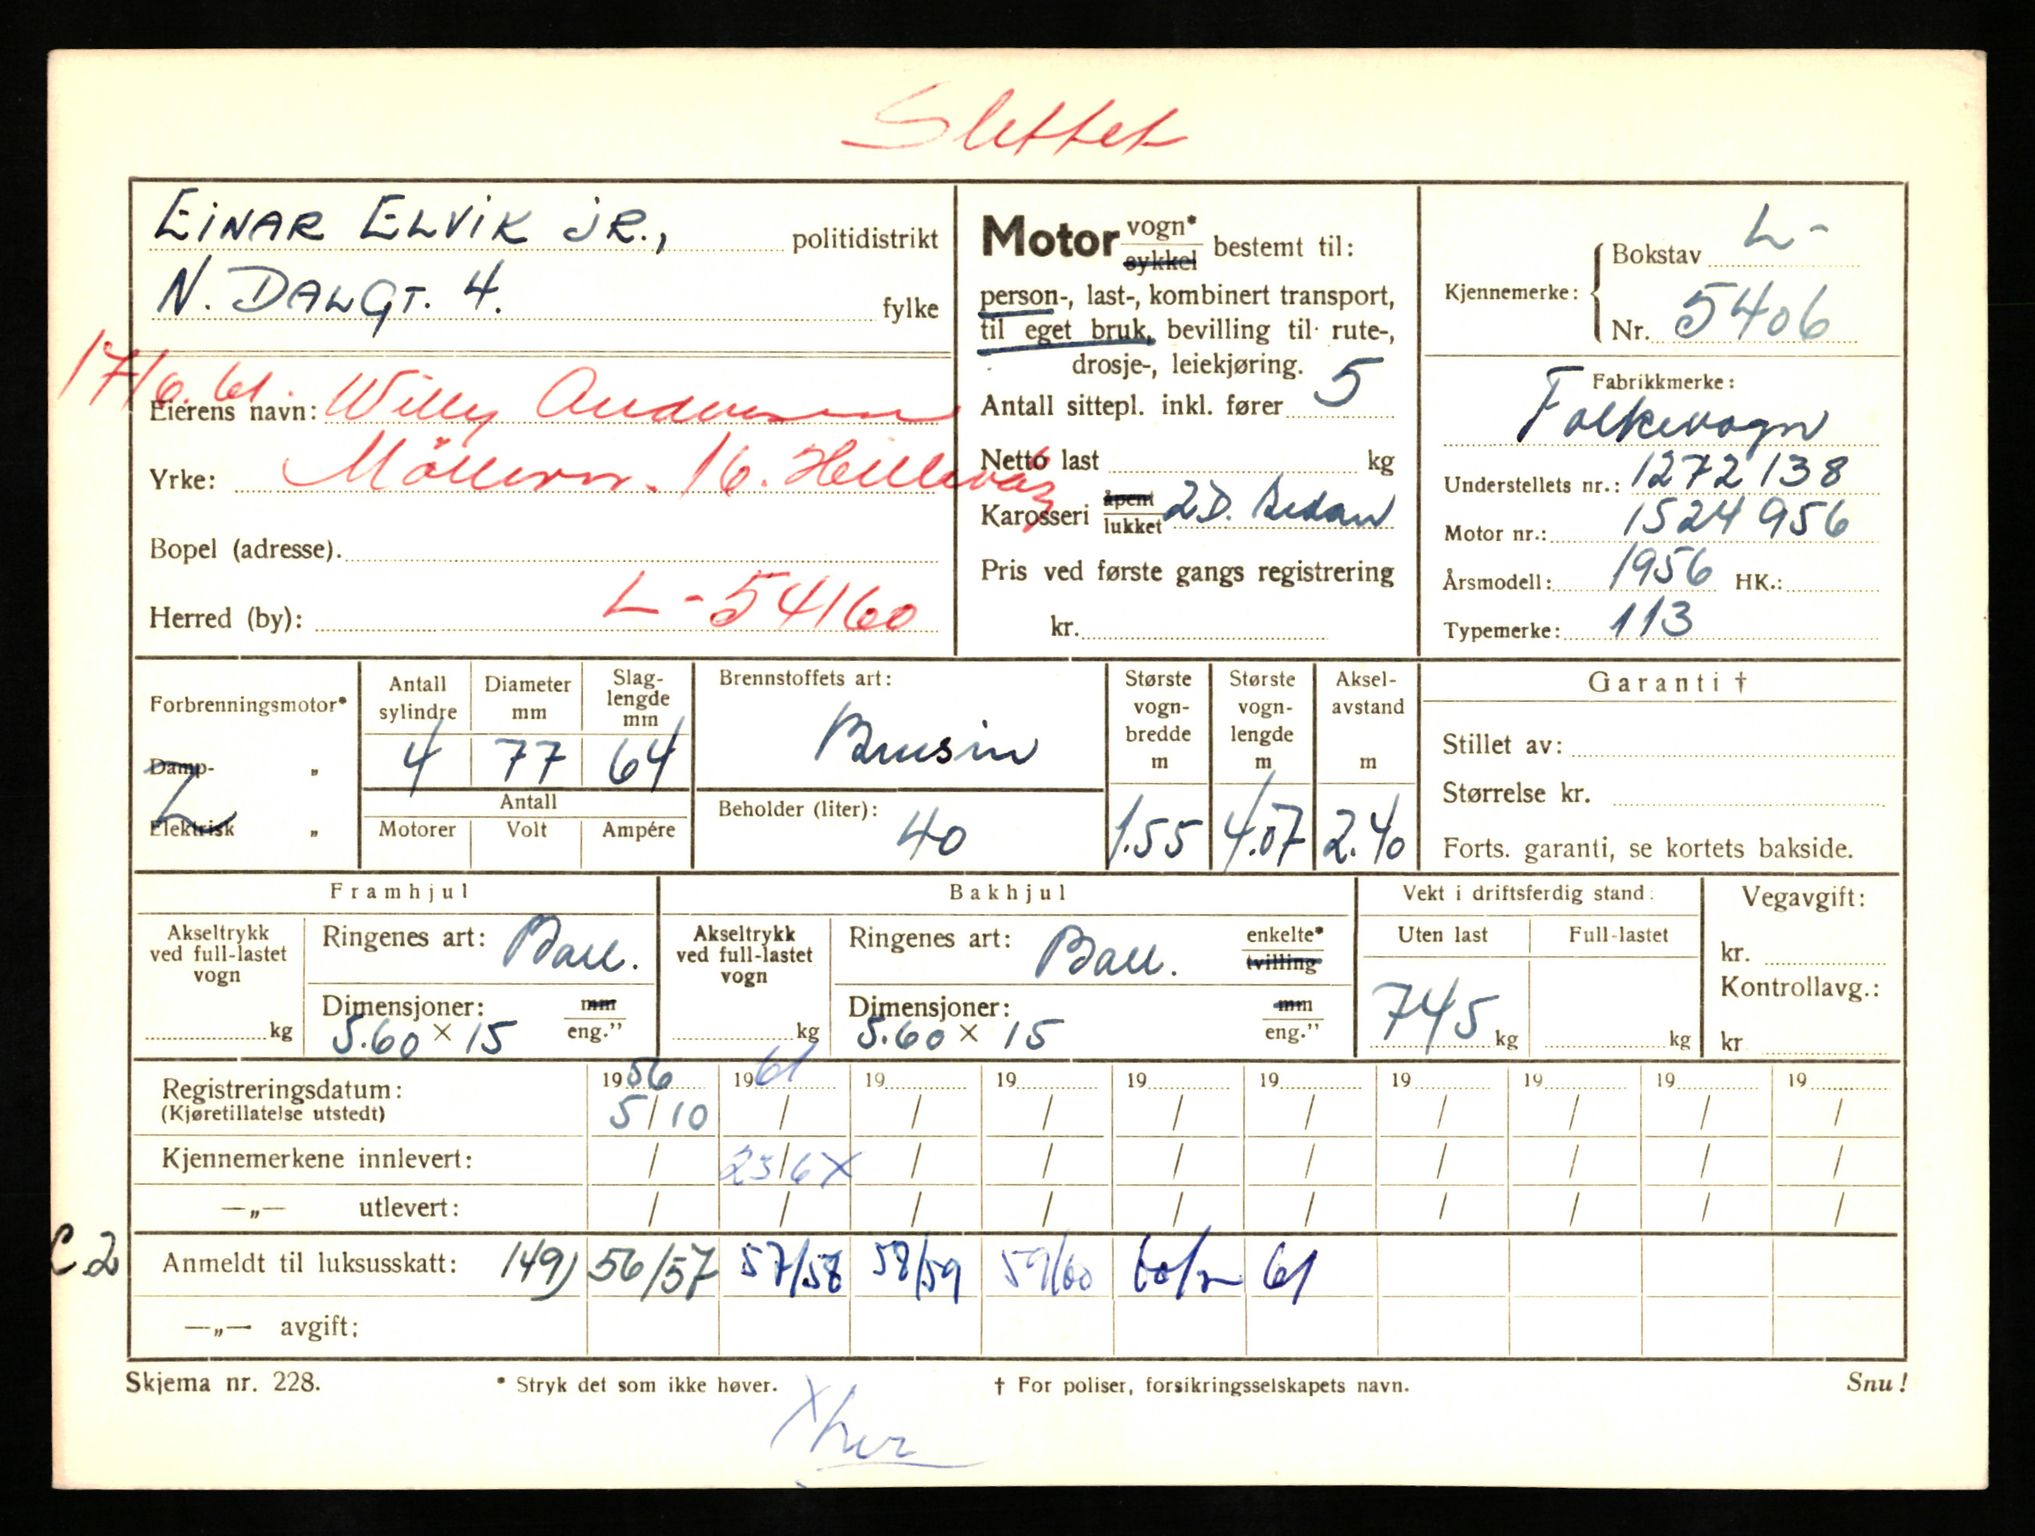 Slettet
EINAR ELVIK JR., politidistrikt
N. DALGT. 4. fylke
17/6.61.
Eierens navn: Willy Andersen
Yrke: Möllervn. 16. Hillevåg
Bopel (adresse).
Herred (by): L-54160
Motor vogn* sykkel bestemt til:
person-, last-, kombinert transport,
til eget bruk, bevilling til rute-,
drosje-, leiekjøring.
Antall sittepl. inkl. fører 5
Netto last kg
Karosseri åpent lukket 2D. Sedan
Pris ved første gangs registrering
kr.
Kjennemerke: Bokstav L-
Nr. 5406
Fabrikkmerke:
Folkevogn
Understellets nr.: 1272138
Motor nr.: 1524956
Årsmodell: 1956 HK.:
Typemerke: 113
Forbrenningsmotor*
Damp- "
Elektrisk "
Antall sylindre 4
Diameter mm 77
Slag-lengde mm 64
Antall
Motorer Volt Ampére
Brennstoffets art:
Bensin
Beholder (liter): 40
Største vogn-bredde m 1.55
Største vogn-lengde m 4.07
Aksel-avstand m 2.40
Garanti †
Stillet av:
Størrelse kr.
Forts. garanti, se kortets bakside.
Framhjul
Akseltrykk ved full-lastet vogn kg
Ringenes art: Ball.
Dimensjoner: mm eng."
5.60 × 15
Bakhjul
Akseltrykk ved full-lastet vogn kg
Ringenes art: Ball. enkelte* tvilling
Dimensjoner: mm eng."
5.60 × 15
Vekt i driftsferdig stand:
Uten last Full-lastet
745 kg kg
Vegavgift:
kr.
Kontrollavg.:
kr
Registreringsdatum: 1956 1961 19 19 19 19 19 19 19 19
(Kjøretillatelse utstedt) 5/10 / / / / / / / / /
Kjennemerkene innlevert: / 23/6 X / / / / / / / /
—„— utlevert: / / / / / / / / / /
C 2 Anmeldt til luksusskatt: 149) 56/57 57/58 58/59 59/60 60/ 61
—„— avgift:
Skjema nr. 228. * Stryk det som ikke høver. † For poliser, forsikringsselskapets navn. Snu!
X her